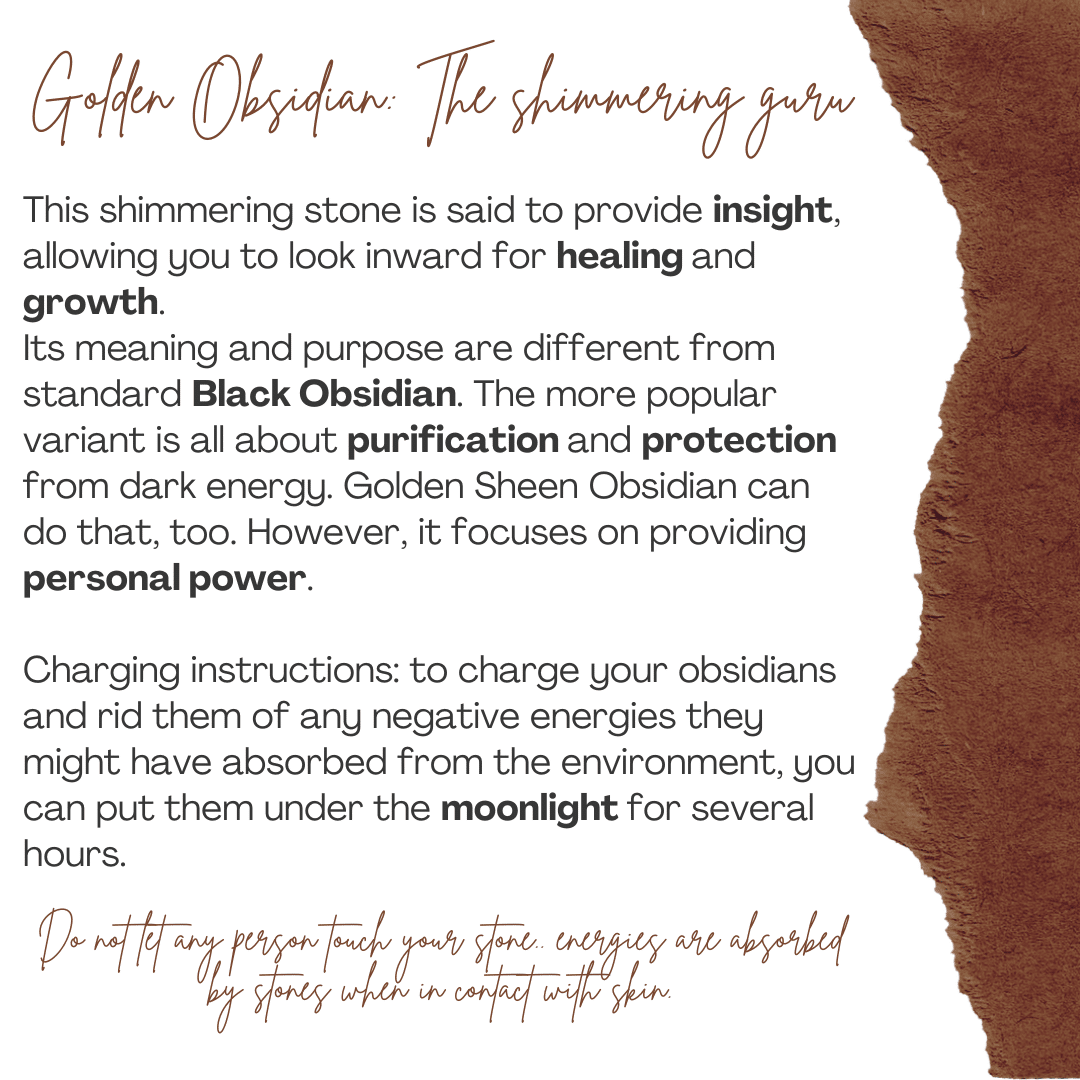 Golden Obsidian: The shimmering guru
This shimmering stone is said to provide insight,
allowing you to look inward for healing and
growth.
Its meaning and purpose are different from
standard Black Obsidian. The more popular
variant is all about purification and protection
from dark energy. Golden Sheen Obsidian can
do that, too. However, it focuses on providing
personal power.
Charging instructions: to charge your obsidians
and rid them of any negative energies they
might have absorbed from the environment, you
can put them under the moonlight for several
hours.
Do not let any person touch your stone.. energies are absorbed
by stones when in contact with skin.